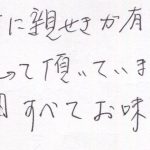 に親せきが有
って頂いていま
すべてお味